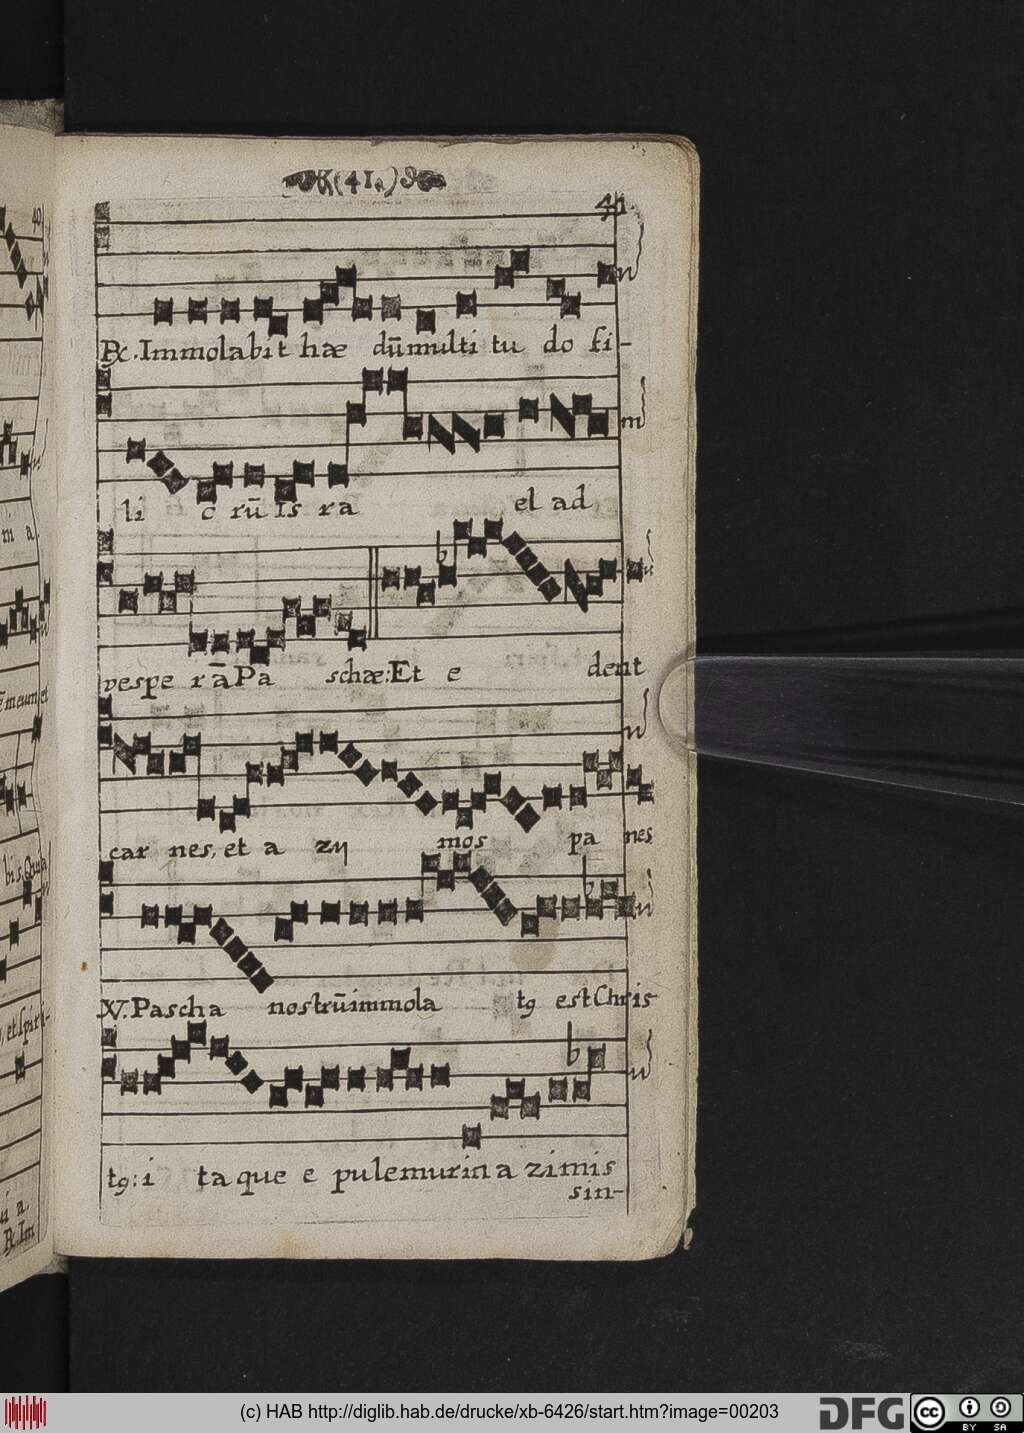 (41.)
41
℟. Immolabit hæ dūmulti tu do fi-
li o rū Is ra el ad
vespe rā Pa schæ: Et e dent
car nes, et a zy mos pa nes
V. Pascha nostrūimmola tꝰ est Chris
tꝰ: i ta que e pulemurin a zimis
sin-
40
ni a.
ē meum et
bis, Quia
, et spiri-
ui a.
℟. Im
(c) HAB http://diglib.hab.de/drucke/xb-6426/start.htm?image=00203
DFG
cc
BY SA